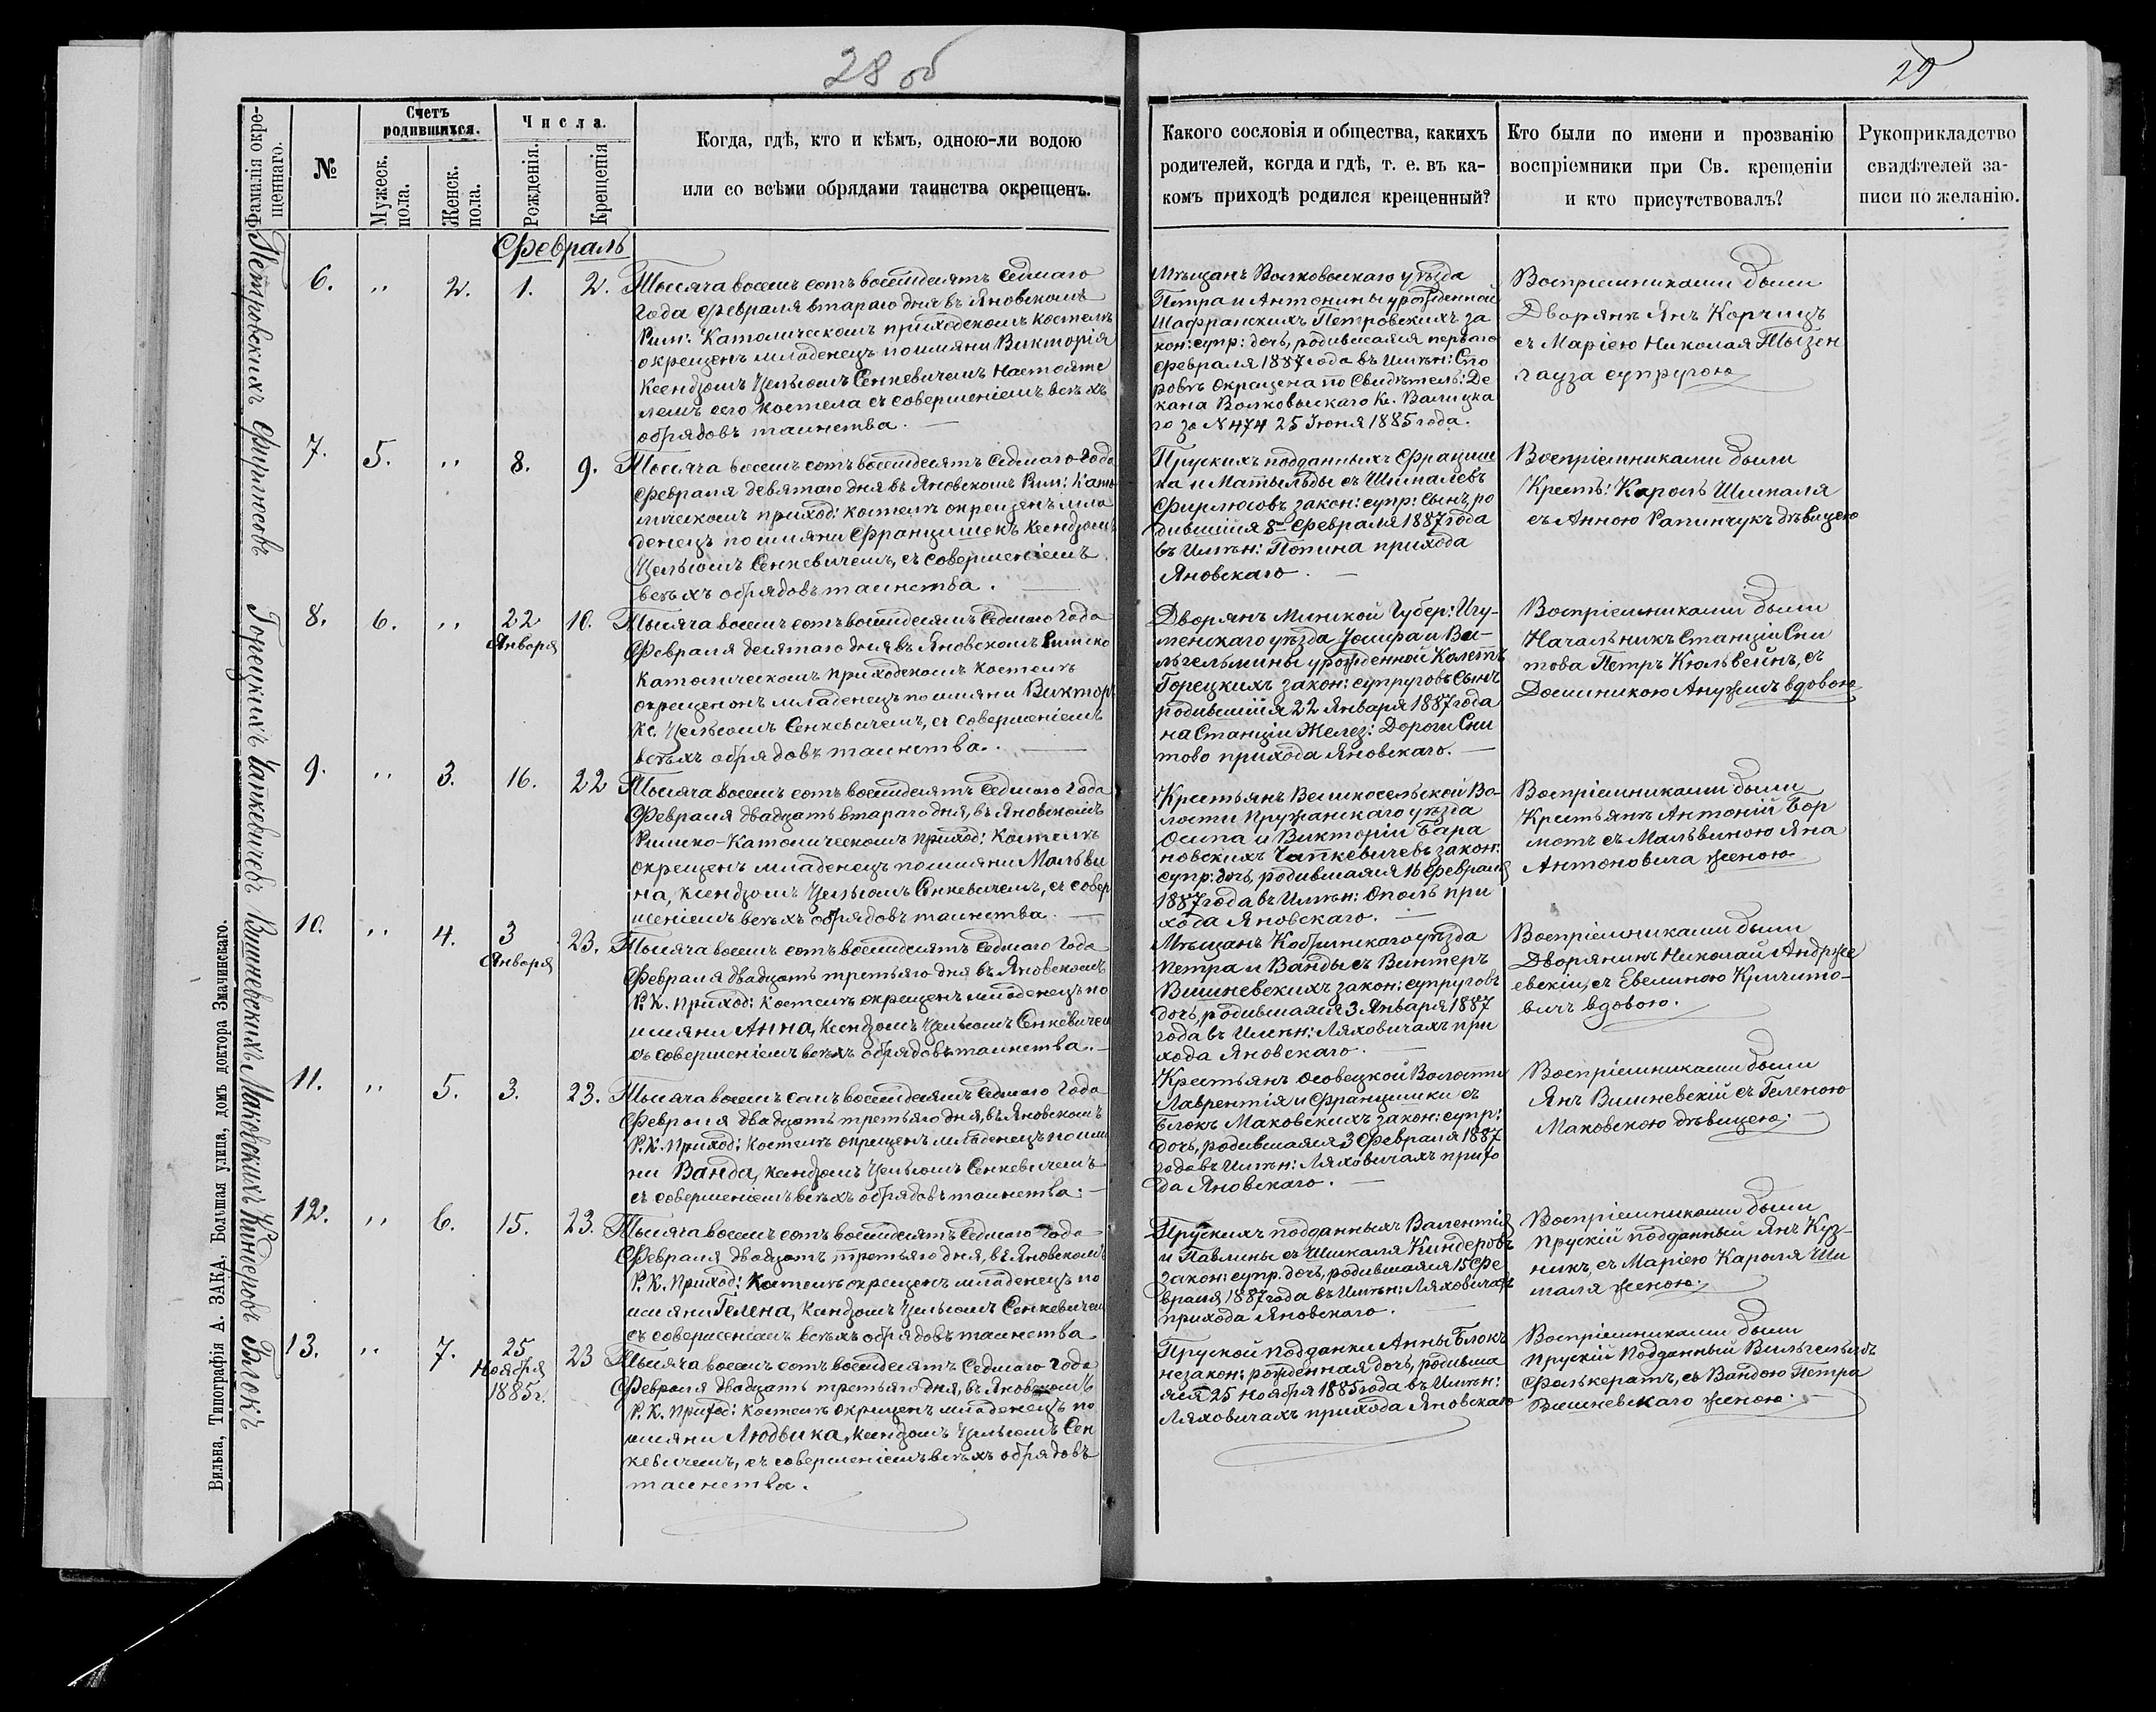 28 об
29
Фамилія окре-
щеннаго.
№
Счетъ
родившихся.
Мужеск.
пола.
Женск.
пола.
Числа.
Рожденія.
Крещенія
Когда, гдѣ, кто и кѣмъ, одною-ли водою
или со всѣми обрядами таинства окрещенъ.
Какого сословія и общества, какихъ
родителей, когда и гдѣ, т. е. въ ка-
комъ приходѣ родился крещенный?
Кто были по имени и прозванію
воспріемники при Св. крещеніи
и кто присутствовалъ?
Рукоприкладство
свидѣтелей за-
писи по желанію.
Февраль
Петровскихъ
6. " 2. 1. 2.
Тысяча восемь сотъ восемдесятъ седмаго
года февраля втараго дня въ Яновскомъ
Рим: Католическомъ приходскомъ костелѣ
окрещенъ младенецъ по имяни Викторія
Ксендзомъ Цельсомъ Сенкевичемъ Настояте
лемъ сего Костела съ совершеніемъ всѣхъ
обрядовъ таинства.
Мѣщанъ Волковыскаго уѣзда
Петра и Антонины урожденной
Шафранскихъ Петровскихъ за
кон: супр: дочь, родившаяся перваго
февраля 1887 года въ Имѣн: Спо
ровѣ Окрещена по Свидѣтель: Де
кана Волковыскаго Кс. Валицка
го за № 474 25 Іюня 1885 года.
Воспріемниками были
Дворянъ Янъ Корчицъ
съ Маріею Николая Тызен
гауза супругою
Фирлюсовъ
7. 5. " 8. 9.
Тысяча восемь сотъ восемдесятъ седмаго года
февраля девятаго дня въ Яновскомъ Рим: Като
лическомъ приход: костелѣ окрещенъ мла
денецъ по имяни Францишекъ Ксендзомъ
Цельсомъ Сенкевичемъ, съ совершеніемъ
всѣхъ обрядовъ таинства.
Прускихъ подданныхъ Франциш
ка и Матыльды съ Шималевъ
Фирлюсовъ закон: супр: сынъ, ро
дившійся 8го февраля 1887 года
въ Имѣн: Попина прихода
Яновскаго.
Воспріемниками были
Крест: Кароль Шималя
съ Анною Рапинчукъ дѣвицею
Горецкихъ
8. 6. " 22 Января 10.
Тысяча восемь сотъ восемдесятъ седмаго года
Февраля десятаго дня въ Яновскомъ Римско
Католическомъ приходскомъ костелѣ
окрещенонъ младенецъ по имяни Викторъ
Кс. Цельсомъ Сенкевичемъ, съ совершеніемъ
всѣхъ обрядовъ таинства.
Дворянъ Минской Губер: Игу-
менскаго уѣзда Іосифа и Ви-
льгельмины урожденной Колетъ
Горецкихъ закон: супруговъ сынъ
родившійся 22 Января 1887 года
на Станціи Желез: Дороги Сни
тово прихода Яновскаго.
Воспріемниками были
Начальникъ Станціи Сни
това Петръ Кюльвейнъ, съ
Доминикою Анужисъ вдовою
Чапкевичевъ
9. " 3. 16. 22
Тысяча восемь сотъ восемдесятъ седмаго года
Февраля двадцать втараго дня, въ Яновскомъ
Римско-Католическомъ приход: костелѣ
окрещенъ младенецъ по имяни Мальви
на, ксендзомъ Цельсомъ Сенкевичемъ, съ совер
шеніемъ всѣхъ обрядовъ таинства.
Крестьянъ Великосельской Во-
лости Пружанскаго уѣзда
Осипа и Викторіи Бара
новскихъ Чапкевичевъ закон:
супр: дочь, родившаяся 16 февраля
1887 года въ Имѣн: Ополь при
хода Яновскаго.
Воспріемниками были
Крестьянъ Антоній Бор
мотъ съ Мальвиною Яна
Антоновича женою
Вишневскихъ
10. " 4. 3 Января 23.
Тысяча восемь сотъ восемдесятъ седмаго года
Февраля двадцать третьяго дня въ Яновскомъ
Р. К. приход: костелѣ окрещенъ младенецъ по
имяни Анна, Ксендзомъ Цельсомъ Сенкевичем
съ совершеніемъ всѣхъ обрядовъ таинства.
Мѣщанъ Кобринскаго уѣзда
Петра и Ванды съ Винтеръ
Вишневскихъ закон: супруговъ
дочь, родившаяся 3 Января 1887
года въ Имѣн: Ляховичахъ при
хода Яновскаго.
Воспріемниками были
Дворянинъ Николай Андрже
евскій, съ Евелиною Климито-
вичъ вдовою.
Маковскихъ
11. " 5. 3. 23.
Тысяча восемь сотъ восемдесятъ седмаго года
Февраля двадцать третьяго дня, въ Яновскомъ
Р. К. Приход: Костелѣ окрещенъ младенецъ по имя
ни Ванда, ксендзомъ Цельсомъ Сенкевичемъ
съ совершеніемъ всѣхъ обрядовъ таинства.
Крестьянъ Осовецкой Волости
Лаврентія и Францишки съ
Блокъ Маковскихъ закон: супр:
дочь, родившаяся 3 Февраля 1887
года въ Имѣн: Ляховичахъ прихо
да Яновскаго.
Воспріемниками были
Янъ Вишневскій съ Геленою
Маковскою дѣвицею.
Киндеровъ
12. " 6. 15. 23.
Тысяча восемь сотъ восемдесятъ седмаго года
Февраля двадцать третьяго дня, въ Яновскомъ
Р. К. Приход: Костелѣ окрещенъ младенецъ по
имяни Гелена, Ксендзомъ Цельсомъ Сенкевичем
съ совершеніемъ всѣхъ обрядовъ таинства
Прускихъ подданныхъ Валентія
и Павлины съ Шималя Киндеровъ
закон: супр. дочь, родившаяся 15 Фе
враля 1887 года въ Имѣн: Ляховичахъ
прихода Яновскаго.
Воспріемниками были
Прускій подданный Янъ Куз-
никъ, съ Маріею Кароля Ши
маля женою.
Блокъ
13. " 7. 25 Ноября 1885 г. 23
Тысяча восемь сотъ восемдесятъ седмаго года
Февраля двадцать третьяго дня, въ Яновскомъ
Р. К. приход: костелѣ окрещенъ младенецъ по
имяни Людвика, Ксендзомъ Цельсомъ Сен
кевичемъ, съ совершеніемъ всѣхъ обрядовъ
таинства.
Пруской подданки Анны Блокъ
незакон: рожденная дочь, родивша
яся 25 Ноября 1885 года въ Имѣн:
Ляховичахъ прихода Яновскаго
Воспріемниками были
Прускій Подданный Вильгельмъ
Фолькератъ, съ Вандою Петра
Вишневскаго женою.
Вильна, Типографія А. ЗАКА, Большая улица, домъ доктора Змачинскаго.